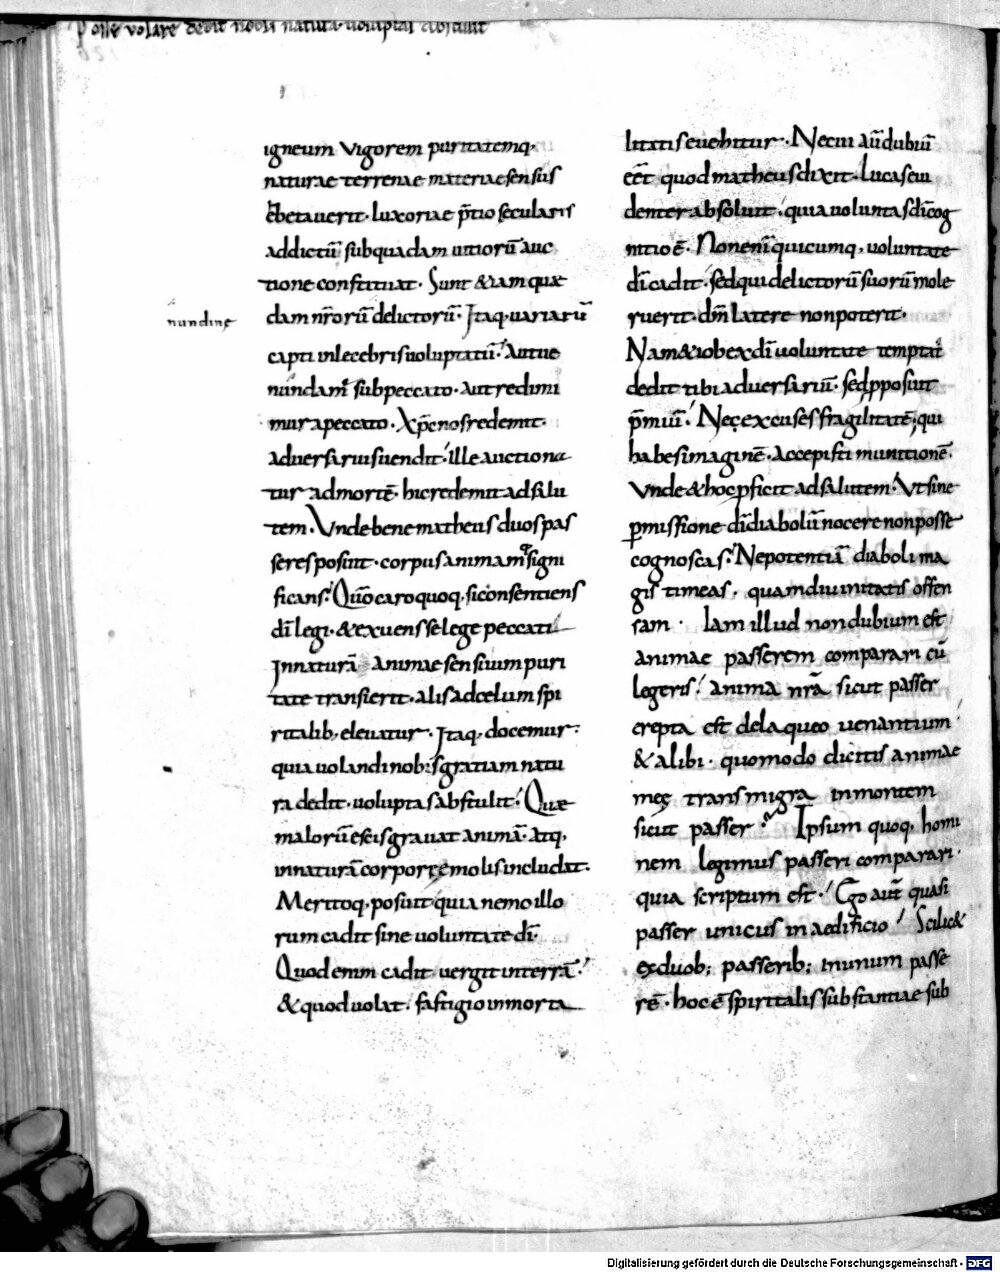 Posse volare dedit nobis natura. voluptas abstulit
igneum vigorem puritatemq;
naturae terrenae materiae sensus
ebetaverit. luxoriae p̄tio secularis
addictū sub quadam vitiorū auc
tione constituat. Sunt & iam quae
dam nr̄orū delictorū. Itaq; variarū
nundine
capti inlecebris voluptatū. Aut ue
nundam̄ sub peccato. Aut redimi
mur a peccato. Xp̄c nos redemit.
adversarius vendit. ille auctiona
tur ad mortē. hic redemit ad salu
tem. Unde bene matheus duos pas
seres posuit. corpus animamq; signi
ficans. Quō caro quoq; si consentiens
dī legi. & exuens se lege peccati
In naturā animae sensuum puri
tate transierit. alis ad celum spi
ritalib; elevatur. Itaq; docemur.
quia volandi nobis gratiam natu
ra dedit. voluptas abstulit. Quae
malorū escis gravat animā. atq;
in naturā corporęe molis includit.
Meritoq; posuit quia nemo illo
rum cadit sine voluntate dī.
Quod enim cadit vergit in terrā.
& quod volat. fastigio in morta
litatis evehitur. Nec cui aūt dubiū
eēt quod matheus dixit. Lucas evi
denter absolvit. quia voluntas dī cog
nitio ē. Non enī quicumq; voluntate
dī cadit. sed qui delictorū suorū mole
ruerit. dm̄ latere non poterit.
Nam & iob ex dī voluntate temptat̄
dedit tibi adversariū. sed pposuit
p̄miū. Neç excuses fragilitatē, qui
habes imaginē. Accepisti munitionē.
Unde & hoc pficit ad salutem. Ut sine
permissione dī diabolū nocere non posse
cognoscas. Ne potentiā diaboli ma
gis timeas. quam divinitatis offen
sam. Iam illud non dubium est
animae passerem comparari cū
legeris. anima nr̄a sicut passer
erepta est de laqueo venantium.
& alibi. quomodo dicitis animae
męę transmigra in montem
sicut passer. Ipsum quoq; homi
nem legimus passeri comparari.
quia scriptum est. Ego aūt quasi
passer unicus in aedificio. Scilic&
ex duob; passerib; in unum passe
rē. hoc ē spiritalis substantiae sub
Digitalisierung gefördert durch die Deutsche Forschungsgemeinschaft - DFG